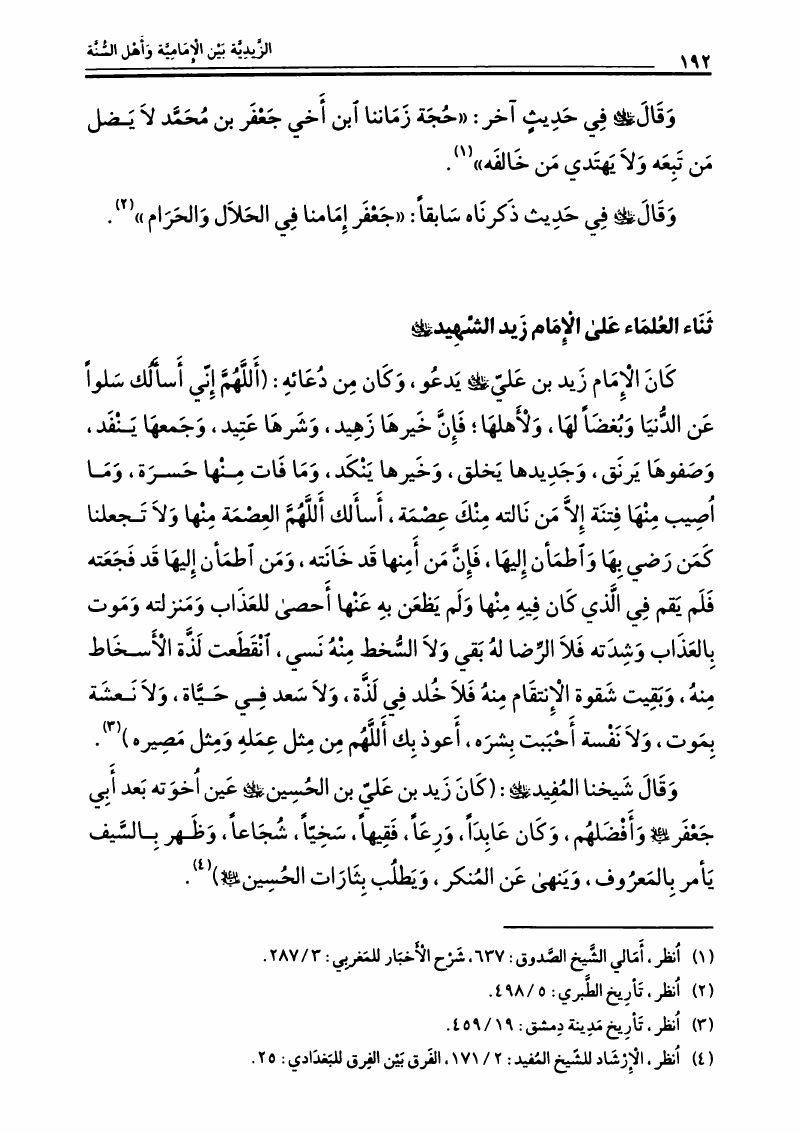 ١٩٢
الزَّيدِيَّة بَيْن الْإِمَامِيَّة وَأَهْل السُّنَّة
وَقَالَ ﷺ فِي حَدِيثٍ آخر : «حُجَة زَمَاننا ٱبن أَخي جَعْفَر بن مُحَمَّد لاَ يَـضل
مَن تَبِعَه وَلاَ يَهتَدي مَن خَالفَه»(١).
وَقَالَ فِي حَدِيث ذَكرنَاه سَابقاً : «جَعْفَر إِمَامنا فِي الحَلاَل وَالحَرَام»(٢).
ثَنَاء العُلمَاء عَلىٰ الْإِمَام زَيد الشّهِيد
كَانَ الْإِمَام زَيد بن عَليّ يَدعُو ، وَكَان مِن دُعَائهِ : (أَللَّهُمَّ إِنّي أَسألُك سَلواً
عَن الدُّنيَا وَبُغضَاً لهَا ، وَلْأَهلهَا ؛ فَإِنَّ خَيرهَا زَهِيد ، وَشَرهَا عَتِيد ، وَجَمعهَا يَـنْفَد ،
وَصَفوهَا يَرنَق ، وَجَدِيدها يَخلق ، وَخَيرها يَنْكَد ، وَمَا فَات مِـنْها حَسـرَة ، وَمَـا
أُصِيب مِنْهَا فِتنَة إِلاَّ مَن نَالته مِنْكَ عِصْمَة ، أَسألك أَللَّهُمَّ العِصْمَة مِنْها وَلاَ تَـجعلنا
كَمَن رَضي بِهَا وَٱطمَأن إِليهَا ، فَإِنَّ مَن أَمِنها قَد خَانَته ، وَمَن ٱطمَأن إِليهَا قَد فَجَعَته
فَلَم يَقم فِي الَّذي كَان فِيهِ مِنْها وَلَم يَظعَن بهِ عَنْها أَحصىٰ للعَذَاب وَمَنزلته وَمَوت
بِالعَذَاب وَشِدَته فَلاَ الرِّضا لهُ بَقي وَلاَ السُّخط مِنْهُ نَسي ، ٱنْقَطَعت لَذَّة الْأَسـخَاط
مِنهُ ، وَبَقِيت شَقوة الْإِنتقَام مِنهُ فَلاَ خُلد فِي لَذَّة ، وَلاَ سَعد فِـي حَـيَّاة ، وَلاَ نَـعشَة
بِمَوت ، وَلاَ نَفْسة أَحْبَبت بِشرَه ، أَعوذ بِك أَللَّهُم مِن مِثل عِمَلهِ وَمِثل مَصِيره )(٣).
وَقَالَ شَيخنا المُفِيد : (كَانَ زَيد بن عَليّ بن الحُسِين عَين أُخوَته بَعد أَبي
جَعْفَر وَأَفْضَلهُم ، وَكَان عَابِدَاً ، وَرِعَاً ، فَقِيهاً ، سَخِيّاً ، شُجَاعاً ، وَظَـهر بِـالسَّيف
يَأمر بِالمَعرُوف ، وَيَنهىٰ عَن المُنكر ، وَيَطلُب بِثَارَات الحُسِين )(٤).
(١) أُنظر ، أَمَالي الشَّيخ الصَّدوق : ٦٣٧، شَرْح الْأَخبَار للمَغربي : ٣/ ٢٨٧.
(٢) أُنظر ، تَأرِيخ الطَّبري : ٥/ ٤٩٨.
(٣) أُنظر ، تَأرِيخ مَدِينة دِمشق : ١٩/ ٤٥٩.
(٤) أُنظر ، الْإِرْشَاد للشّيخ المُفيد : ٢/ ١٧١، الفَرق بَيْن الفِرق للبَغدَادي : ٢٥.